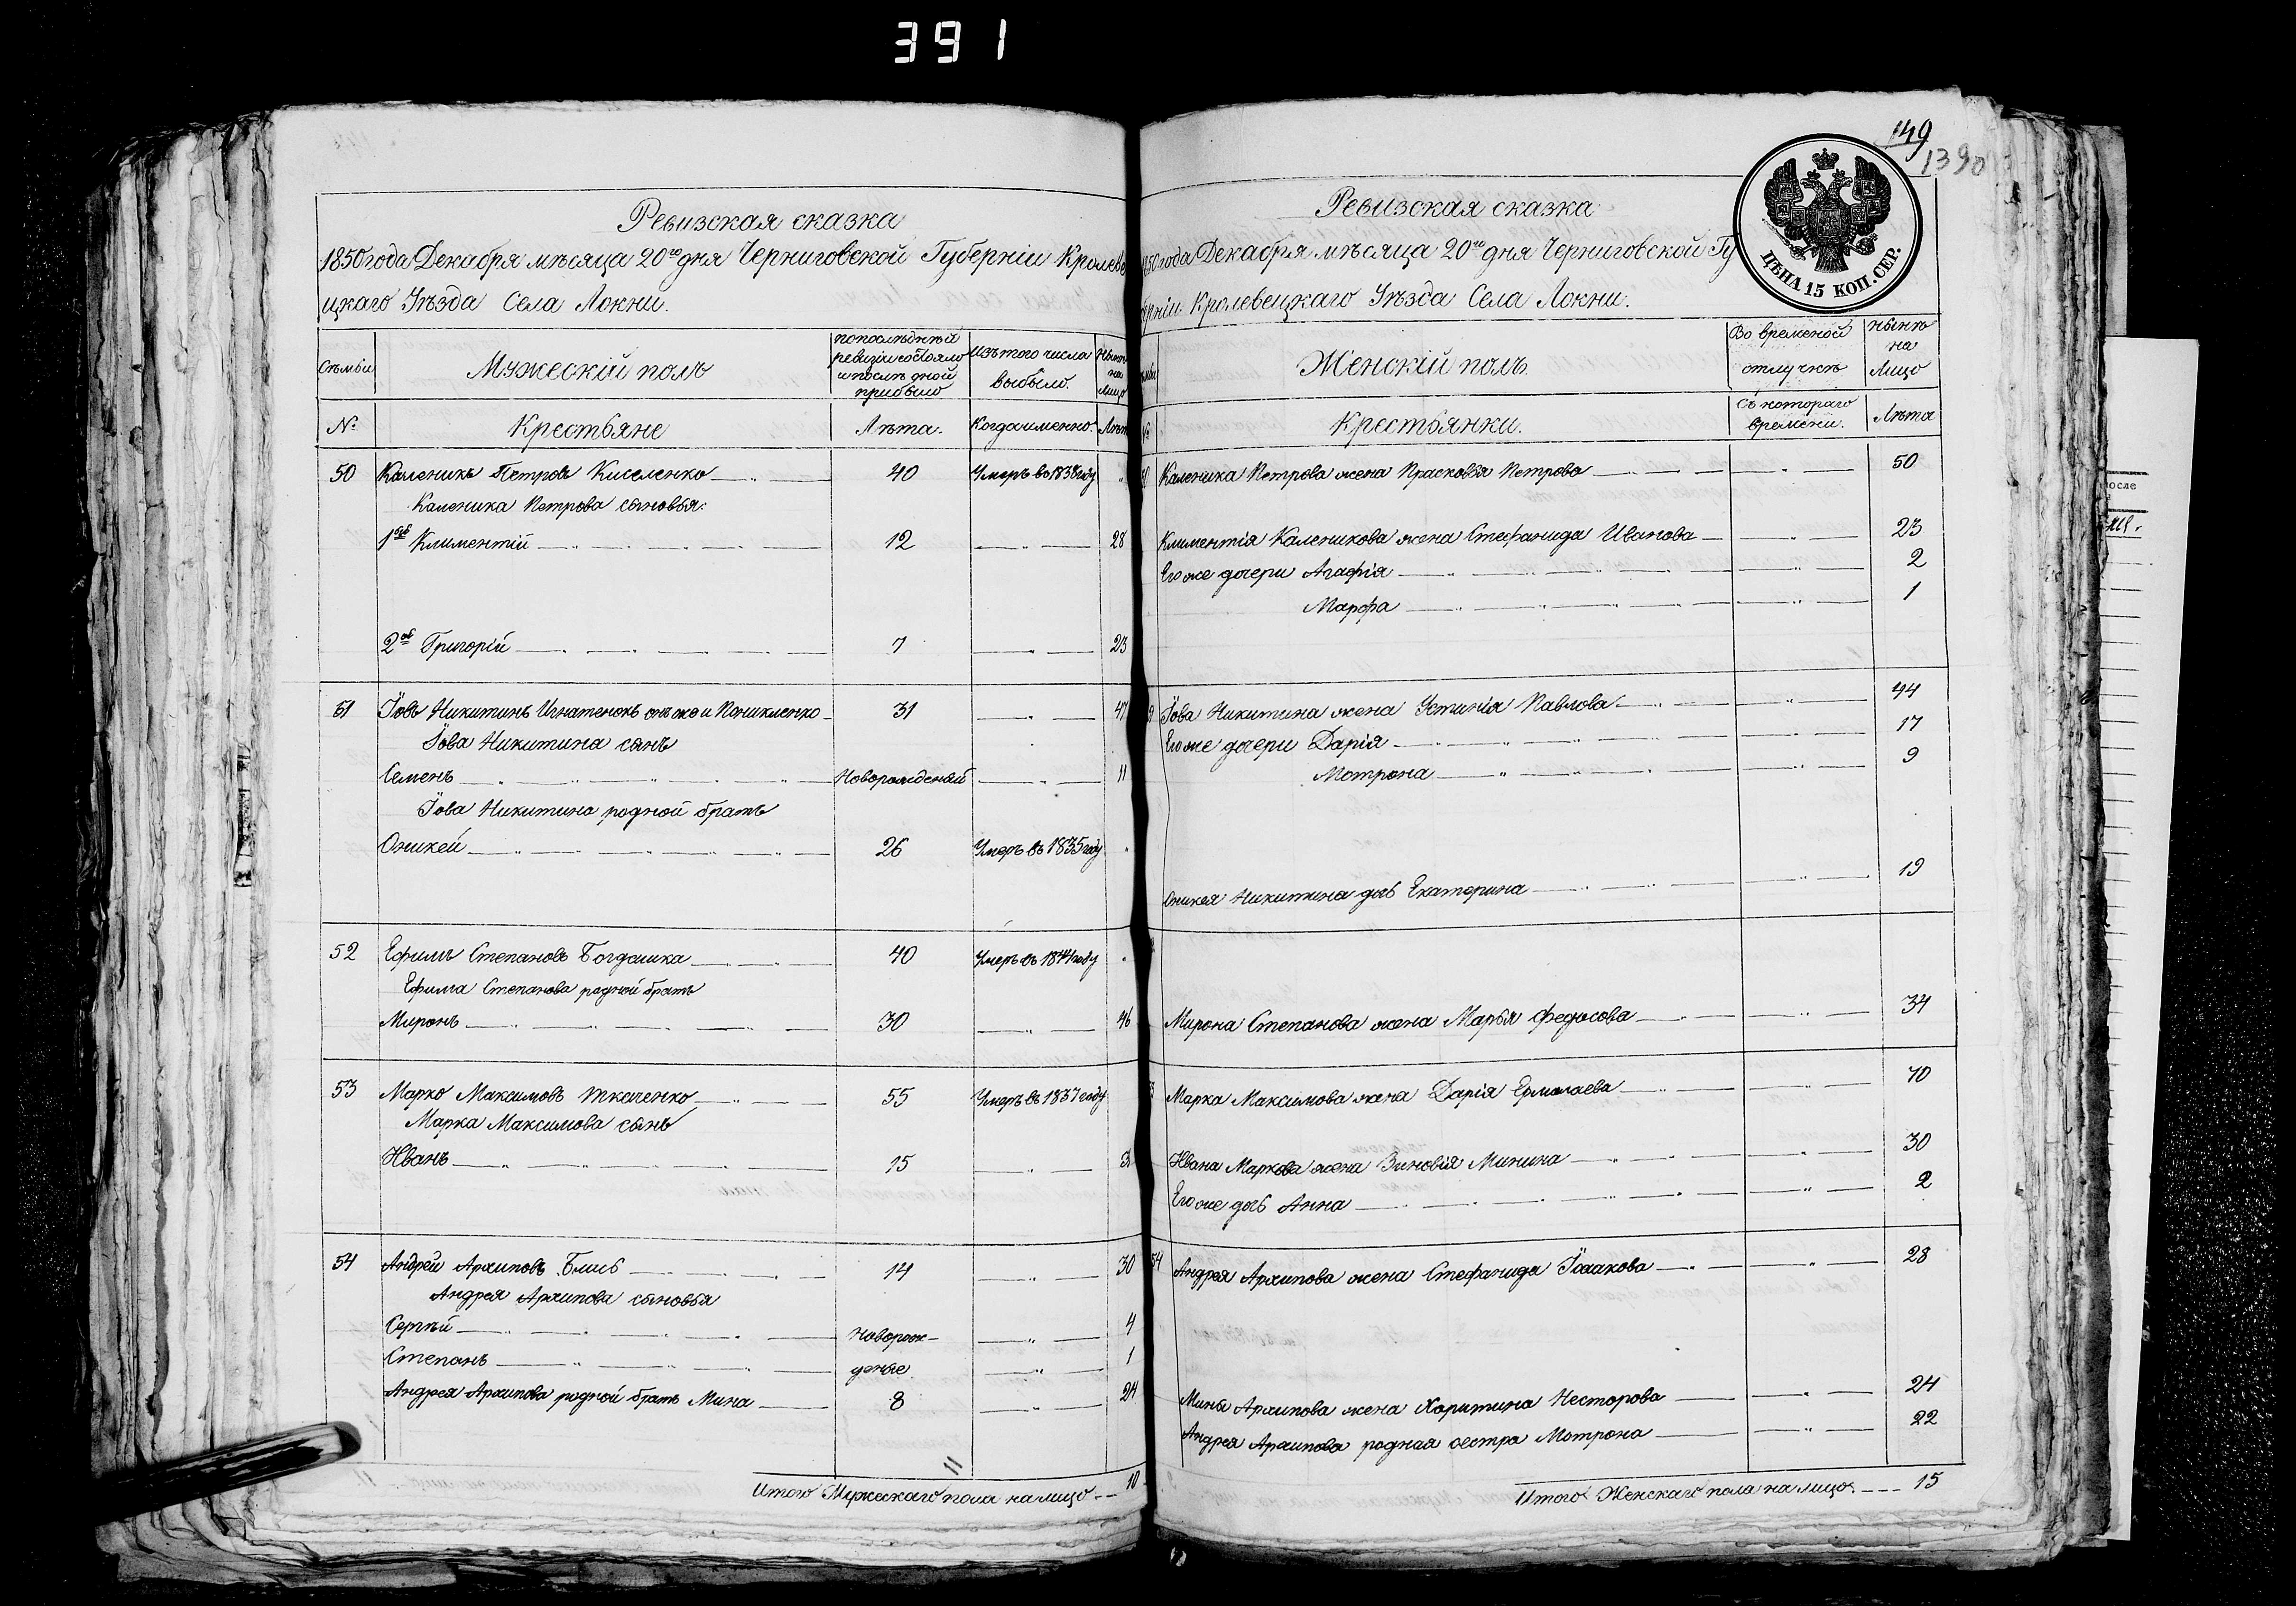 391
Ревизская сказка
1850 года Декабря мѣсяца 20го дня Черниговской Губерніи Кролеве
цкаго Уѣзда Села Локни.
Сѣмьи
Мужескій полъ
попослѣдней ревизіи состояло и послѣ оной прибыло
Изъ того числа выбыло.
Нынѣ на лицо
№
Крестьяне
Лѣта.
Когда именно.
Лѣта
50 Каленикъ Петровъ Киселенко 40 Умеръ въ 1838 году
Каленика Петрова сыновья:
1ой Климентій 12 28
2ой Григорій 7 23
51 Іовъ Никитинъ Игнатенокъ онъ же и Паникленко 31 47
Іова Никитина сынъ
Семенъ Новорожденый 11
Іова Никитина родной братъ
Оникей 26 Умеръ въ 1835 году
52 Ефимъ Степановъ Богдашка 40 Умеръ въ 1844 году
Ефима Степанова родной братъ
Миронъ 30 46
53 Марко Максимовъ Ткаченко 55 Умеръ въ 1837 году
Марка Максимова сынъ
Иванъ 15 31
54 Андрей Архиповъ Блись 14 30
Андрея Архипова сыновья
Сергѣй Новорож- 4
Степанъ деные 1
Андрея Архипова родной братъ Мина 8 24
11
Итого Мужескаго пола на лицо 10
149
1390
Ревизская сказка
1850 года Декабря мѣсяца 20го дня Черниговской Гу
берніи Кролевецкаго Уѣзда Села Локни.
ЦѢНА 15 КОП. СЕР.
Женскій полъ
Во временой отлучкѣ
Нынѣ на Лицо
№
Крестьянки.
Съ котораго времени.
Лѣта
Каленика Петрова жена Прасковья Петрова 50
Климентія Каленикова жена Стефанида Иванова 23
Его же дочери Агафія 2
Марфа 1
Іова Никитина жена Устинія Павлова 44
Его же дочери Дарія 17
Мотрона 9
Оникея Никитина дочь Екатерина 19
Мирона Степанова жена Марья Федосова 34
Марка Максимова жена Дарія Ермолаева 70
Ивана Маркова жена Зиновія Минина 30
Его же дочь Анна 2
54 Андрея Архипова жена Стефанида Ісаакова 28
Мины Архипова жена Харитина Несторова 24
Андрея Архипова родная сестра Мотрона 22
Итого Женскаго пола на лицо. 15
после